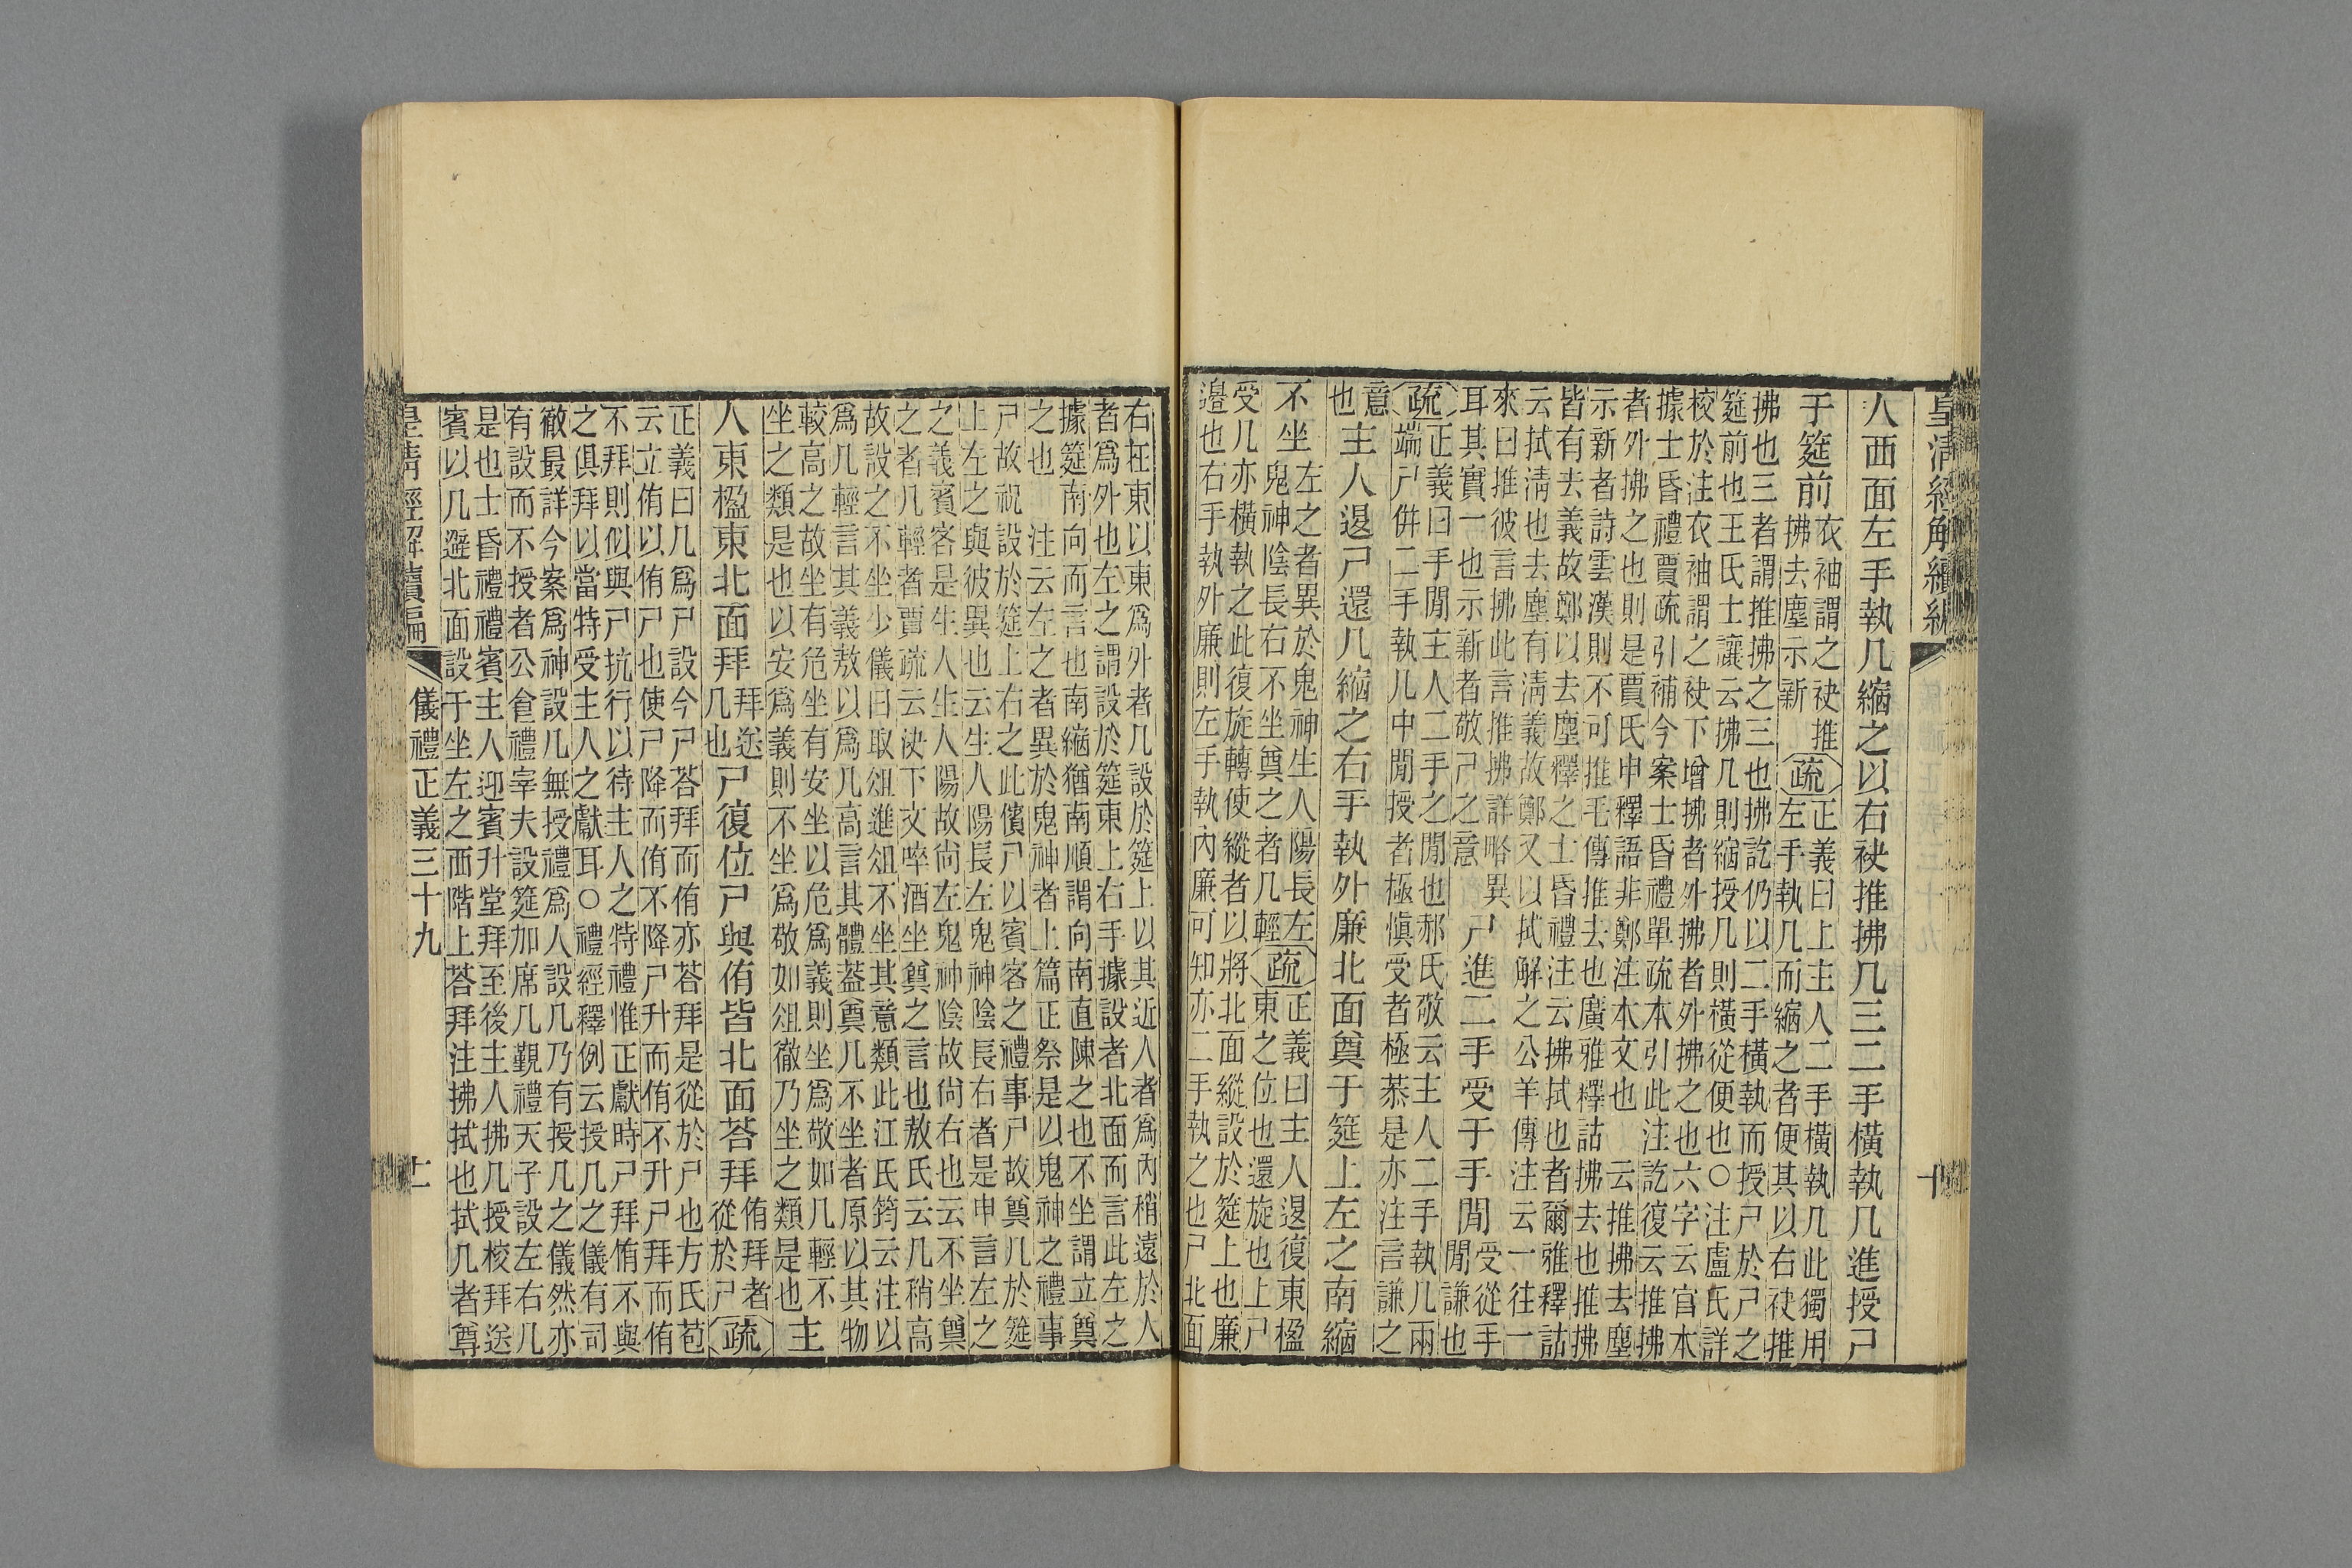 皇清經解續編
十
人西面左手執几縮之以右袂推拂几三二手橫執几進授尸
于筵前
衣袖謂之袂推
拂去塵示新
疏
正義曰上主人二手橫執几此獨用
左手執几而縮之者便其以右袂推
拂也三者謂推拂之三也拂訖仍以二手橫執而授尸於尸之
筵前也王氏士讓云拂几則縮授几則橫從便也○注盧氏詳
校於注衣袖謂之袂下增拂者外拂者外拂之也六字云官本
據士昏禮賈疏引補今案士昏禮單疏本引此注訖復云推拂
者外拂之也則是賈氏申釋語非鄭注本文也 云推拂去塵
示新者詩雲漢則不可推毛傳推去也廣雅釋詁拂去也推拂
皆有去義故鄭以去塵釋之士昏禮注云拂拭也者爾雅釋詁
云拭清也去塵有清義故鄭又以拭解之公羊傳注云一往一
來曰推彼言拂此言推拂詳略異
耳其實一也示新者敬尸之意
尸進二手受于手閒
受從手
閒謙也
疏
正義曰手閒主人二手之閒也郝氏敬云主人二手執几兩
端尸併二手執几中閒授者極慎受者極恭是亦注言謙之
意
也
主人退尸還几縮之右手執外廉北面奠于筵上左之南縮
不坐
左之者異於鬼神生人陽長左
鬼神陰長右不坐奠之者几輕
疏
正義曰主人退復東楹
東之位也還旋也上尸
受几亦橫執之此復旋轉使縱者以將北面縱設於筵上也廉
邊也右手執外廉則左手執內廉可知亦二手執之也尸北面
右在東以東爲外者几設於筵上以其近人者爲內稍遠於人
者爲外也左之謂設於筵東上右手據設者北面而言此左之
據筵南向而言也南縮猶南順謂向南直陳之也不坐謂立奠
之也 注云左之者異於鬼神者上篇正祭是以鬼神之禮事
尸故祝設於筵上右之此儐尸以賓客之禮事尸故奠几於筵
上左之與彼異也云生人陽長左鬼神陰長右者是申言左之
之義賓客是生人生人陽故尙左鬼神陰故尙右也云不坐奠
之者几輕者賈疏云決下文啐酒坐奠之言也敖氏云几稍高
故設之不坐少儀曰取俎進俎不坐其意類此江氏筠云注以
爲几輕言其義敖以爲几高言其體蓋奠几不坐者原以其物
較高之故坐有危坐有安坐以危爲義則坐爲敬如几輕不
坐之類是也以安爲義則不坐爲敬如俎徹乃坐之類是也
主
人東楹東北面拜
拜送
几也
尸復位尸與侑皆北面荅拜
侑拜者
從於尸
疏
正義曰几爲尸設今尸荅拜而侑亦荅拜是從於尸也方氏苞
云立侑以侑尸也使尸降而侑不降尸升而侑不升尸拜而侑
不拜則似與尸抗行以待主人之特禮惟正獻時尸拜侑不與
之俱拜以當特受主人之獻耳○禮經釋例云授几之儀有司
徹最詳今案爲神設几無授禮爲人設几乃有授几之儀然亦
有設而不授者公食禮宰夫設筵加席几覲禮天子設左右几
是也士昏禮禮賓主人迎賓升堂拜至後主人拂几授校拜送
賓以几避北面設于坐左之西階上荅拜注拂拭也拭几者尊
皇清經解續編
儀禮正義三十九
十一